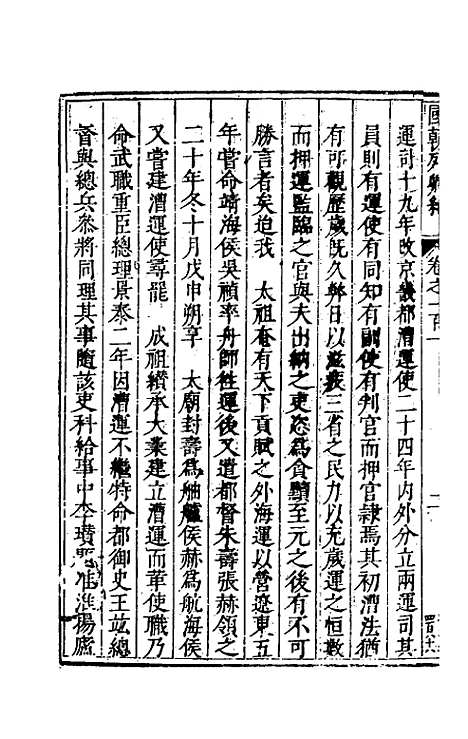 國朝典彙 卷之一百一 二
運司十九年改京畿都漕運使二十四年內外分立兩運司其
員則有運使有同知有副使有判官而押官隸焉其初漕法猶
有可觀歷歲既久弊日以滋疲三省之民力以充歲運之恒數
而押運監臨之官與夫出納之吏恣為貪黷至元之後有不可
勝言者矣迨我 太祖奄有天下貢賦之外海運以營遼東五
年嘗命靖海侯吳禎率舟師徃運後又遣都督朱壽張赫領之
二十年冬十月戊申朔享 太廟封壽為舳艫侯赫為航海侯
又嘗建漕運使尋罷 成祖纘承大業建立漕運而革使職乃
命武職重臣總理景泰二年因漕運不繼特命都御史王竑總
督與總兵參將同理其事隨該吏科給事中李瓚題准淮揚廬